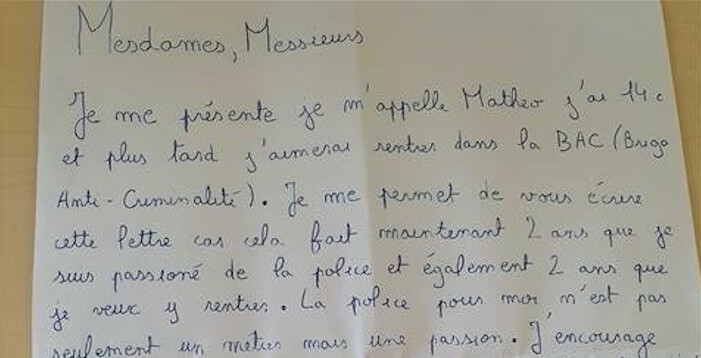 Mesdames, Messieurs
Je me présente je m'appelle Matheo j'ai 14
et plus tard j'aimerai rentrer dans la BAC (Briga
Anti-Criminalité). Je me permet de vous écrire
cette lettre car cela fait maintenant 2 ans que je
suis passioné de la police et également 2 ans que
je veux y rentrer. La police pour moi n'est pas
seulement un métier mais une passion. J'encourage